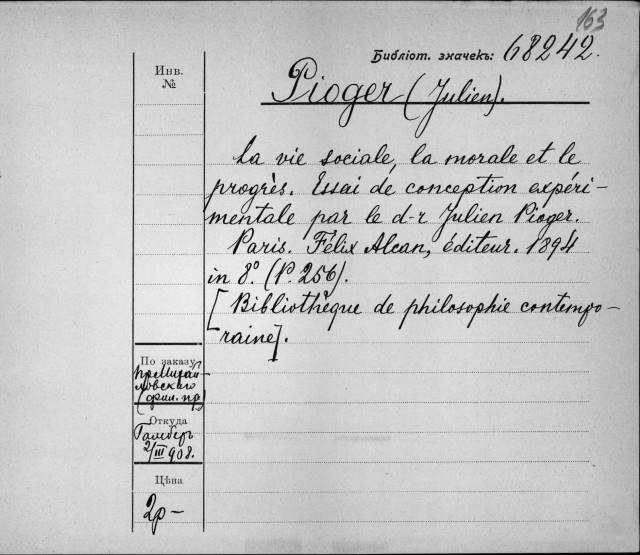 163
Библіот. значекъ: 68242.
Инв.
№
Pioger (Julien).
La vie sociale, la morale et le
progrès. Essai de conception expéri-
mentale par le d-r Julien Pioger.
Paris. Félix Alcan, éditeur. 1894
in 8° (P. 256).
[Bibliothèque de philosophie contempo-
raine].
По заказу
пр. Михай-
ловскаго
(фил. пр)
Откуда
2/III 908.
Цѣна
2р-